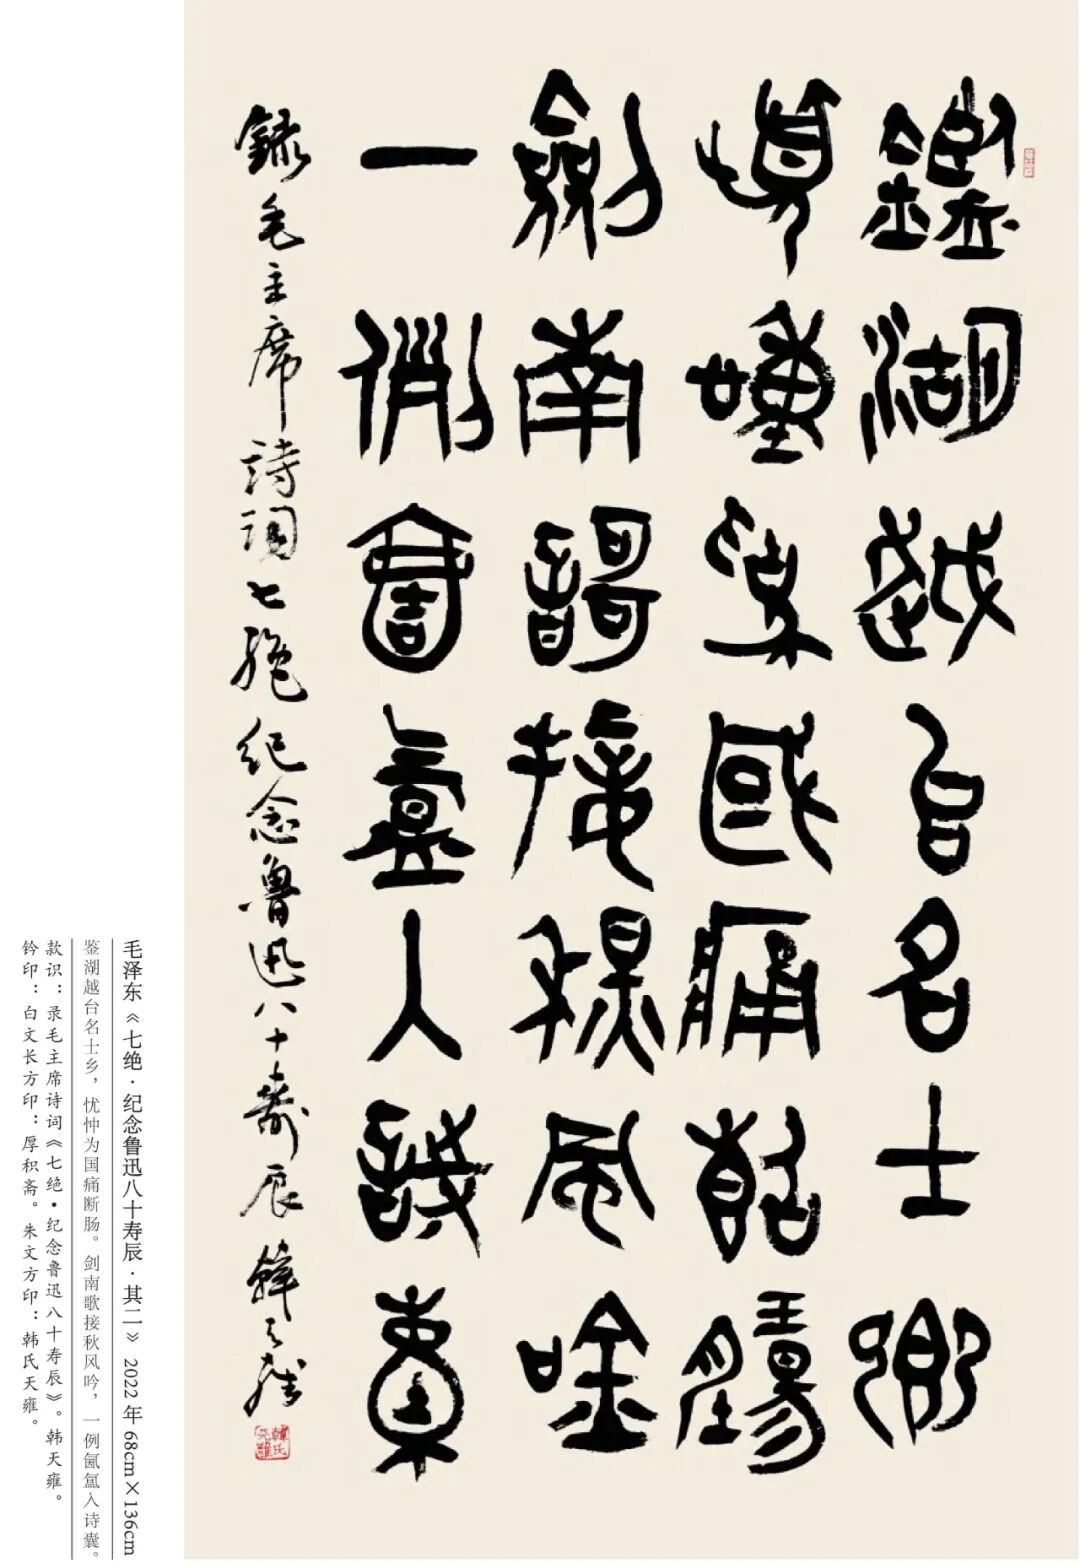 鑑湖越台名士鄉
憂忡為國痛斷腸
劍南謌接秋風唫
一例氤氳入詩囊
録毛主席詩詞七絶紀念魯迅八十壽辰 韓天雍
韓氏天雍
毛泽东《七绝·纪念鲁迅八十寿辰·其二》 2022年 68cm×136cm
鉴湖越台名士乡，忧忡为国痛断肠。剑南歌接秋风吟，一例氤氲入诗囊。
款识：录毛主席诗词《七绝·纪念鲁迅八十寿辰》。韩天雍。
钤印：白文长方印：厚积斋。朱文方印：韩氏天雍。